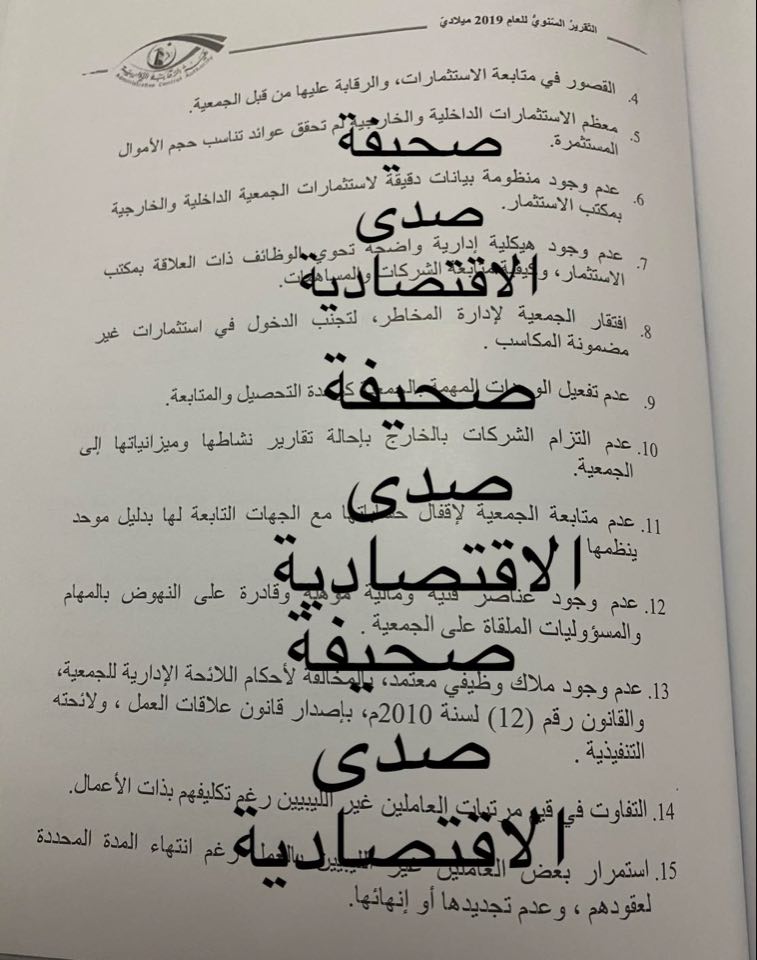 التقرير السنوي للعام 2019 ميلادي
Administrative Control Authority
4. القصور في متابعة الاستثمارات، والرقابة عليها من قبل الجمعية.
5. معظم الاستثمارات الداخلية والخارجية لم تحقق عوائد تناسب حجم الأموال
المستثمرة.
صحيفة
6. عدم وجود منظومة بيانات دقيقة لاستثمارات الجمعية الداخلية والخارجية
بمكتب الاستثمار.
صدى
7. عدم وجود هيكلية إدارية واضحة تحوي الوظائف ذات العلاقة بمكتب
الاستثمار، وكيفية متابعة الشركات والمساهمات.
الاقتصادية
8. افتقار الجمعية لإدارة المخاطر، لتجنب الدخول في استثمارات غير
مضمونة المكاسب .
صحيفة
9. عدم تفعيل المهمة التحصيل والمتابعة.
10. عدم التزام الشركات بالخارج بإحالة تقارير نشاطها وميزانياتها إلى
الجمعية.
صدى
11. عدم متابعة الجمعية لإقفال حساباتها مع الجهات التابعة لها بدليل موحد
ينظمها
الاقتصادية
12. عدم وجود عناصر فنية ومالية مؤهلة وقادرة على النهوض بالمهام
والمسؤوليات الملقاة على الجمعية .
صحيفة
13. عدم وجود ملاك وظيفي معتمد، بالمخالفة لأحكام اللائحة الإدارية للجمعية،
والقانون رقم (12) لسنة 2010م، بإصدار قانون علاقات العمل ، ولائحته
التنفيذية .
صدى
14. التفاوت في قيم مرتبات العاملين غير الليبيين رغم تكليفهم بذات الأعمال.
الاقتصادية
15. استمرار بعض العاملين غير الليبيين بالعمل رغم انتهاء المدة المحددة
لعقودهم ، وعدم تجديدها أو إنهائها.